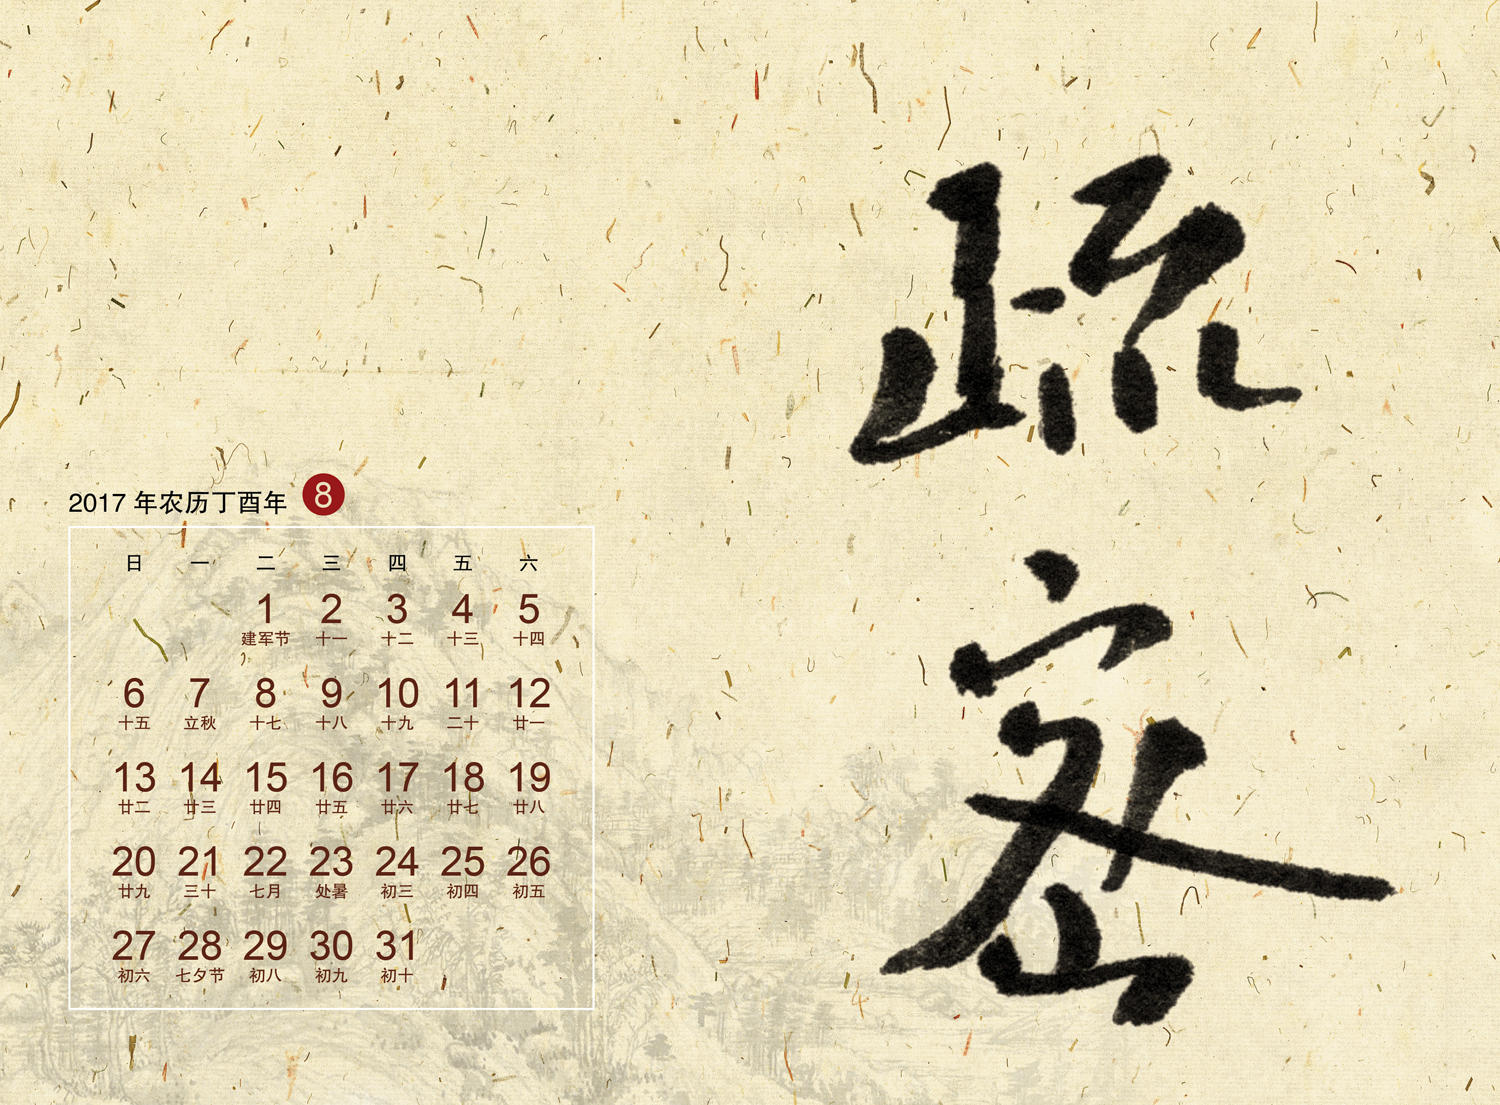 疏
密
2017 年农历丁酉年 8
日 一 二 三 四 五 六
1 2 3 4 5
建军节 十一 十二 十三 十四
6 7 8 9 10 11 12
十五 立秋 十七 十八 十九 二十 廿一
13 14 15 16 17 18 19
廿二 廿三 廿四 廿五 廿六 廿七 廿八
20 21 22 23 24 25 26
廿九 三十 七月 处暑 初三 初四 初五
27 28 29 30 31
初六 七夕节 初八 初九 初十